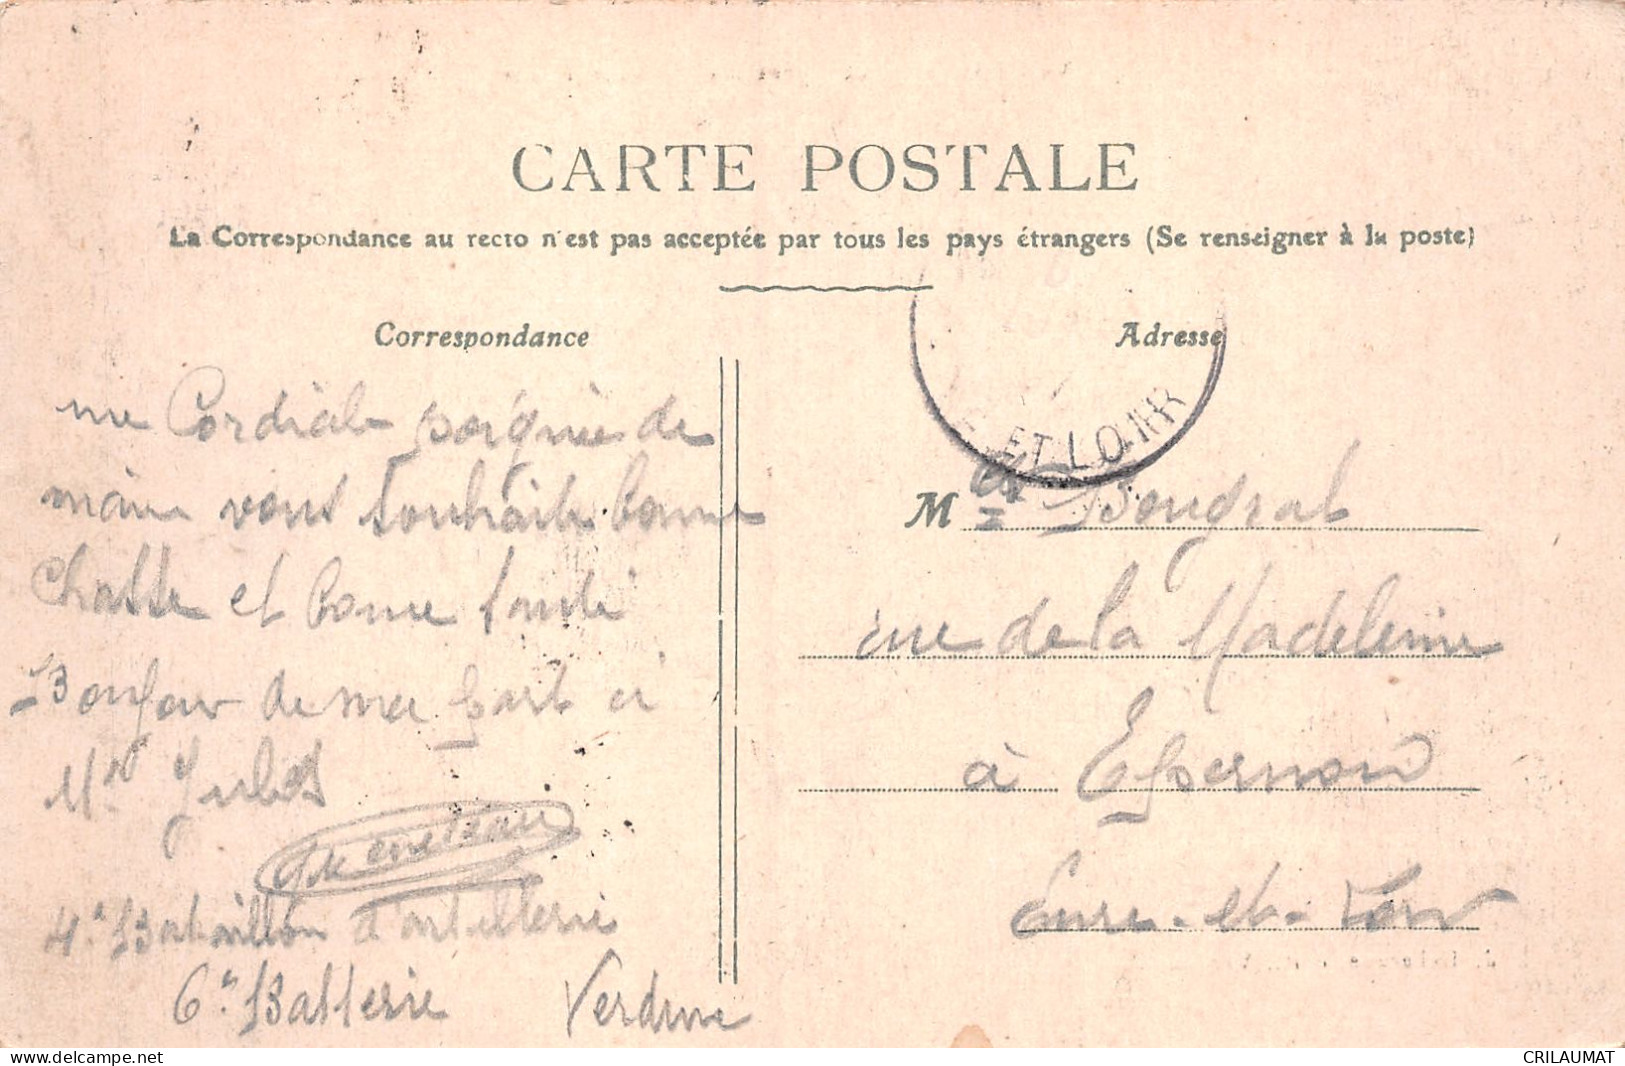 CARTE POSTALE
La Correspondance au recto n'est pas acceptée par tous les pays étrangers (Se renseigner à la poste)
Correspondance
une Cordiale poignée de
main vous souhaite bonne
Chasse et bonne santé
Bonjour de ma part à
Mr Jules
4e Bataillon d'artillerie
6e Batterie Verdun
Adresse
ET LOIR
M Bougrat
rue de la Madeleine
à Epernon
Eure-et-Loir
CRILAUMAT